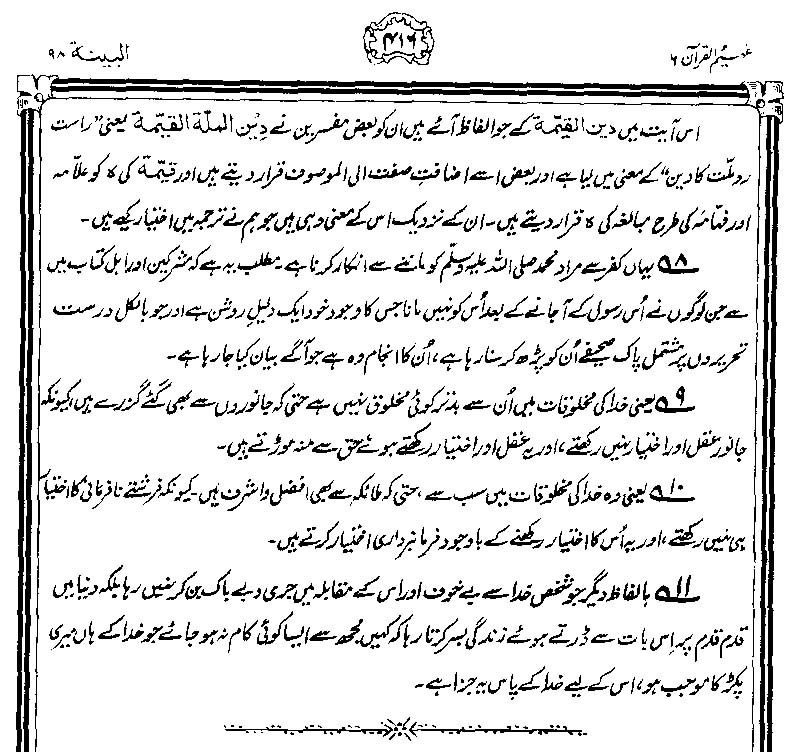 تفہیم القرآن ۶
۴۱۶
البینۃ ۹۸
اس آیت میں دین القیّمۃ کے جو الفاظ آئے ہیں ان کو بعض مفسرین نے دِیْنُ الملّۃ القیّمۃ یعنی "راست
رو ملّت کا دین" کے معنی میں لیا ہے اور بعض اسے اضافتِ صفت الی الموصوف قرار دیتے ہیں اور قیّمۃ کی ۃ کو علّامہ
اور فہّامہ کی طرح مبالغہ کی ۃ قرار دیتے ہیں۔ ان کے نزدیک اس کے معنی وہی ہیں جو ہم نے ترجمہ میں اختیار کیے ہیں۔
۸ یہاں کفر سے مراد محمد صلی اللہ علیہ وسلّم کو ماننے سے انکار کرنا ہے۔ مطلب یہ ہے کہ مشرکین اور اہلِ کتاب میں
سے جن لوگوں نے اُس رسول کے آجانے کے بعد اُس کو نہیں مانا جس کا وجود خود ایک دلیلِ روشن ہے اور جو بالکل درست
تحریروں پر مشتمل پاک صحیفے اُن کو پڑھ کر سنا رہا ہے، اُن کا انجام وہ ہے جو آگے بیان کیا جا رہا ہے۔
۹ یعنی خدا کی مخلوقات میں اُن سے بدتر کوئی مخلوق نہیں ہے حتیٰ کہ جانوروں سے بھی گئے گزرے ہیں، کیونکہ
جانور عقل اور اختیار نہیں رکھتے، اور یہ عقل اور اختیار رکھتے ہوئے حق سے منہ موڑتے ہیں۔
۱۰ یعنی وہ خدا کی مخلوقات میں سب سے، حتیٰ کہ ملائکہ سے بھی افضل و اشرف ہیں۔ کیونکہ فرشتے نافرمانی کا اختیا
ہی نہیں رکھتے، اور یہ اُس کا اختیار رکھنے کے باوجود فرمانبرداری اختیار کرتے ہیں۔
۱۱ بالفاظ دیگر جو شخص خدا سے بے خوف اور اس کے مقابلہ میں جری و بے باک بن کر نہیں رہا بلکہ دنیا میں
قدم قدم پر اِس بات سے ڈرتے ہوئے زندگی بسر کرتا رہا کہ کہیں مجھ سے ایسا کوئی کام نہ ہو جائے جو خدا کے ہاں میری
پکڑ کا موجب ہو، اس کے لیے خدا کے پاس یہ جزا ہے۔